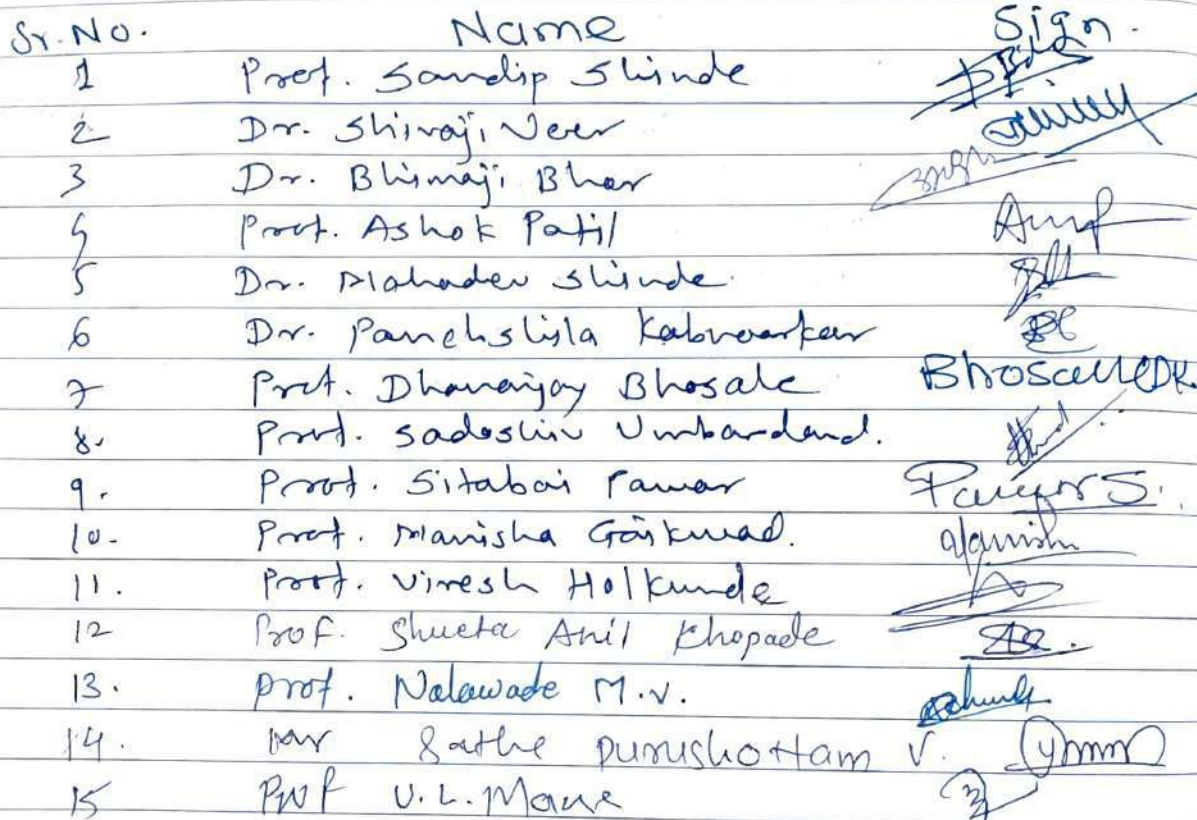 Sr. No. Name Sign.
1 Prof. Sandip Shinde
2 Dr. Shivaji Veer
3 Dr. Bhimaji Bhor
4 Prof. Ashok Patil
5 Dr. Mahadev Shinde.
6 Dr. Panchshila Kabnoorkar
7 Prof. Dhananjay Bhosale Bhosale DK.
8. Prof. Sadashiv Umbardand.
9. Prof. Sitabai Pawar Pawar S.
10. Prof. Manisha Gaikwad. Manisha
11. Prof. Viresh Holkunde
12 Prof. Shweta Anil Khopade
13. Prof. Nalawade M.V.
14. Mr Sathe Purushottam V.
15 Prof U.L. Mane